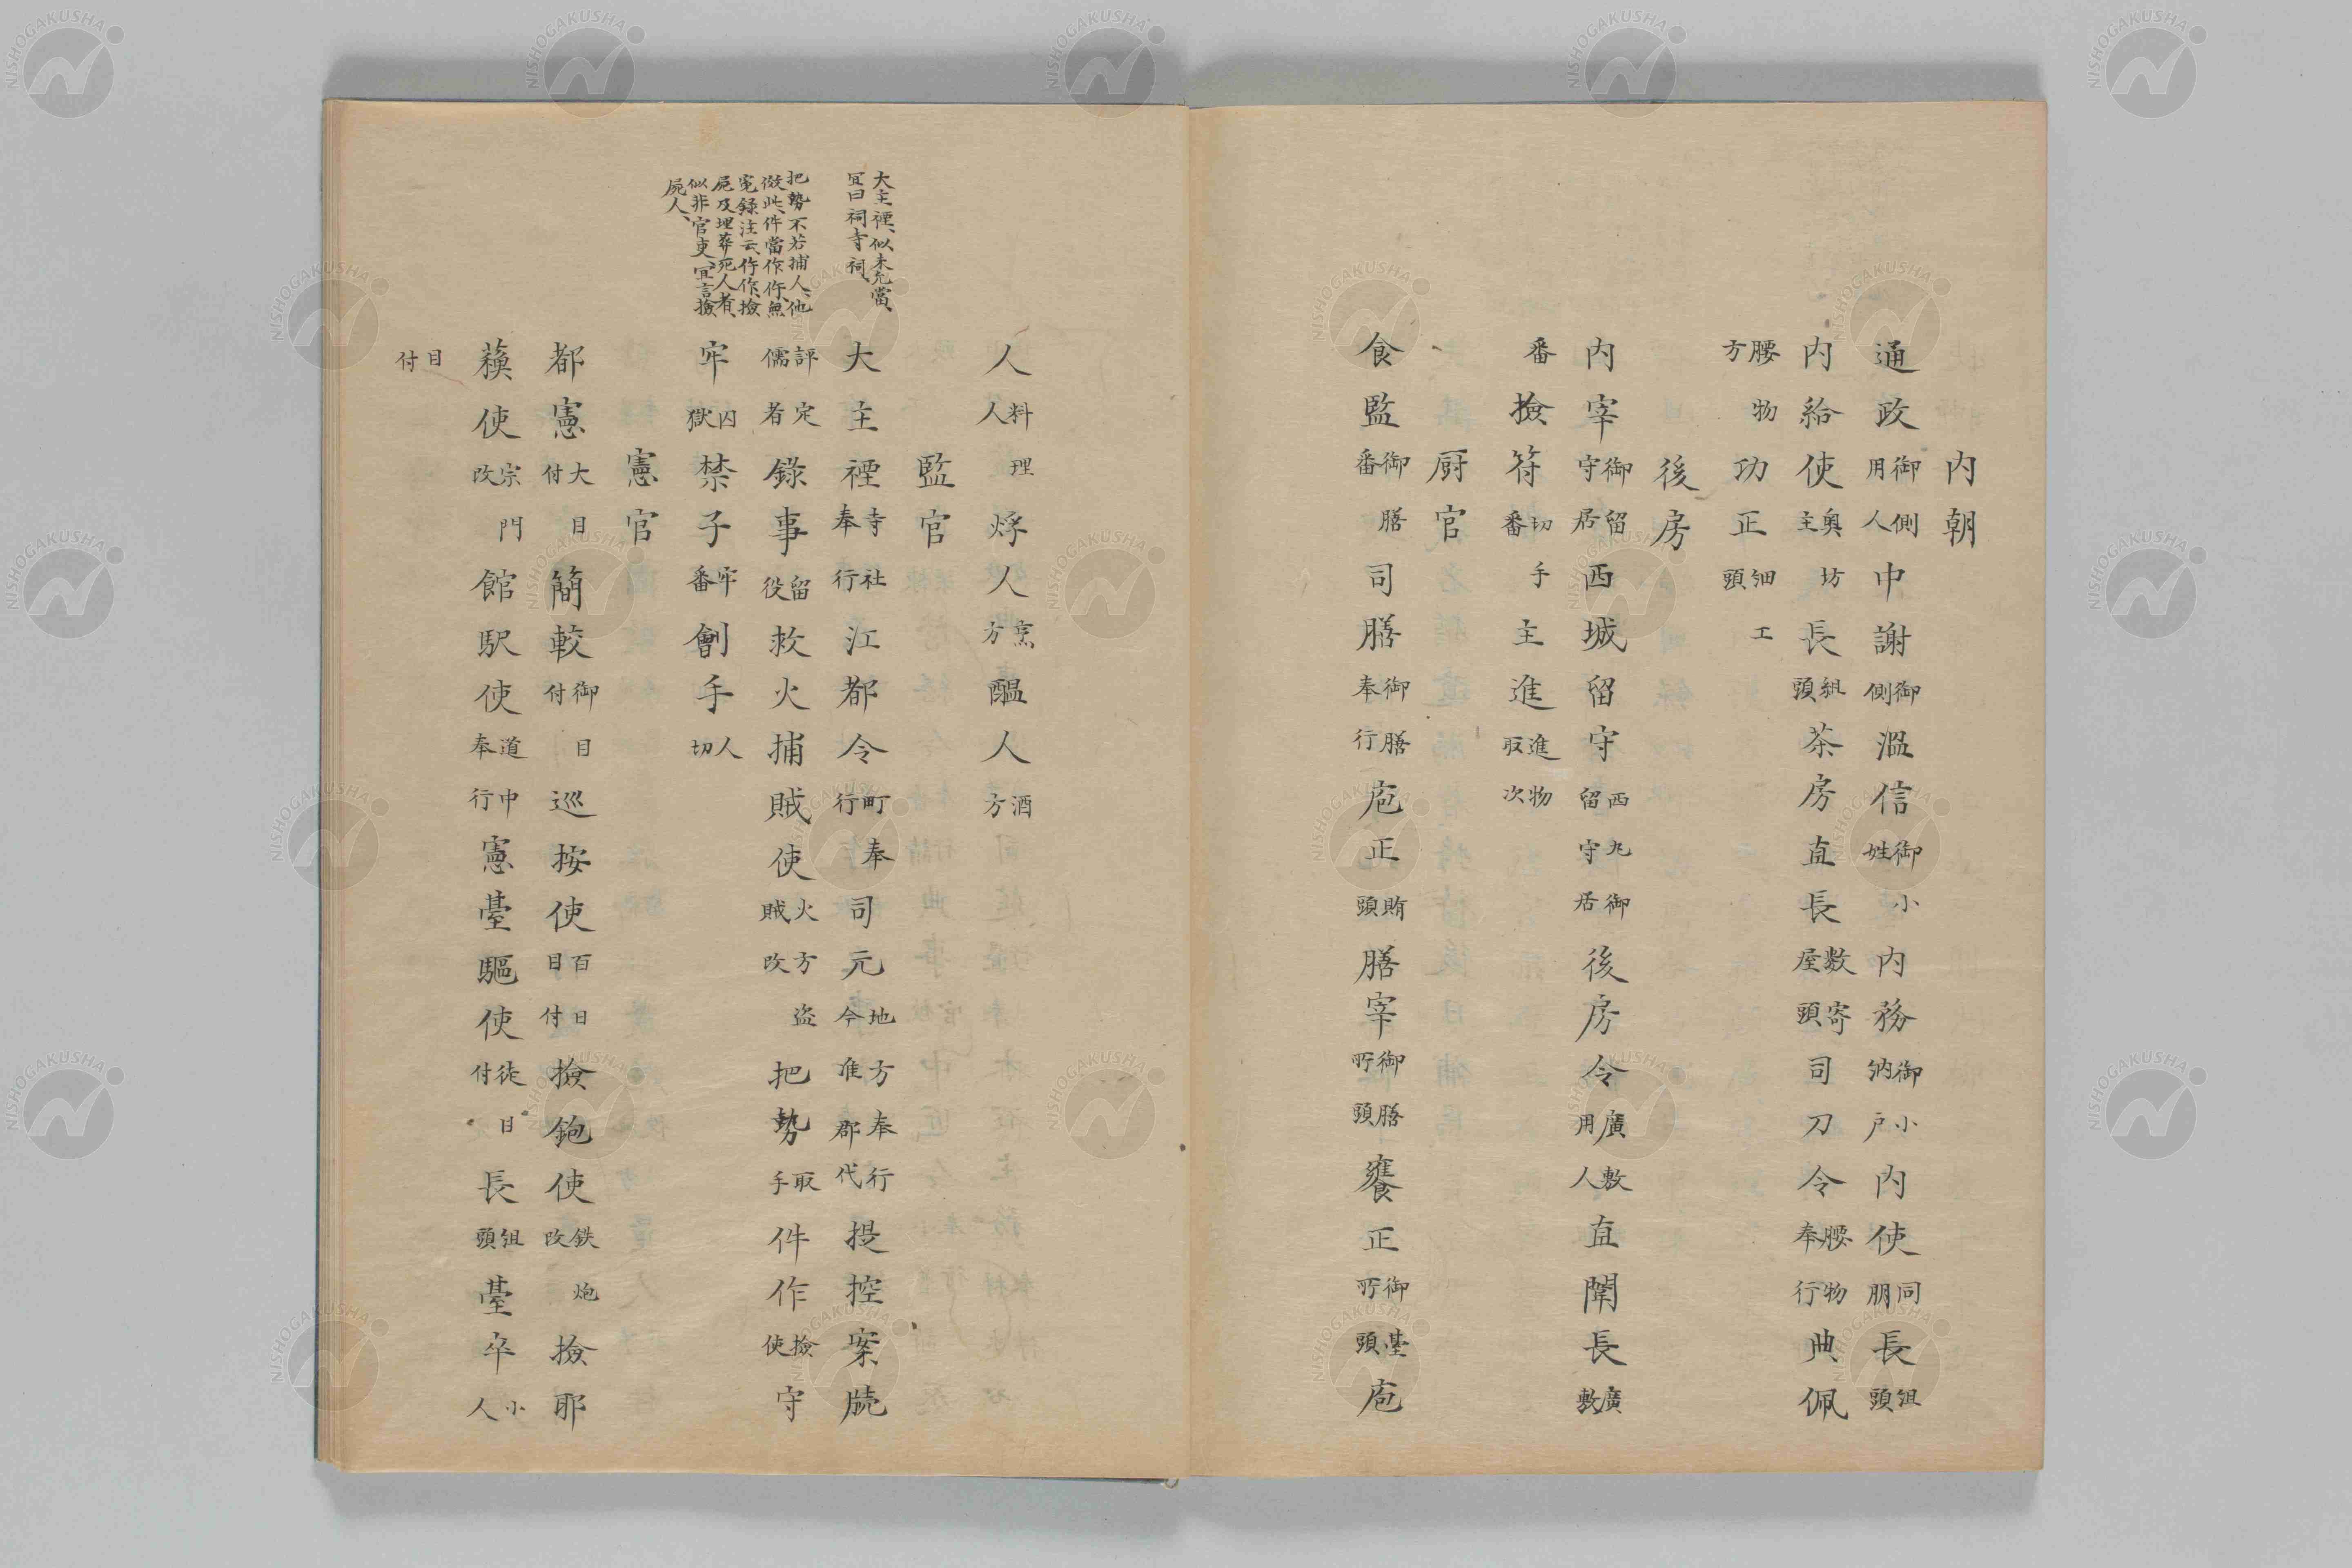 内朝
通政御側用人中謝御側溫信御小姓内務御小納戸内使同朋長組頭
内給使奥坊主長組頭茶房直長数寄屋頭司刀令腰物奉行典佩
腰物方功正細工頭
後房
内宰御留守居西城留守西丸御留守居後房令廣敷用人直闈長廣敷
番撿符切手番主進進物取次
厨官
食監御膳番司膳御膳奉行庖正賄頭膳宰御膳所頭饔正御臺所頭庖
人料理人烰人烹方醞人酒方
監官
大主禋、似未允當、
宜曰祠寺祠、
大主禋寺社奉行江都令町奉行司元地方奉行今准郡代提控案牘
把勢不若捕人、他
倣此、件當作仵、無
冤錄注云、仵作、撿
屍及埋葬死人者、
似非官吏、宜言撿
屍人、
評定儒者錄事留役救火捕賊使火方盗賊改把勢取手件作撿使守
牢囚獄禁子牢番劊手人切
憲官
都憲大目付簡較御目付巡按使百日目付撿鉋使鉄炮改撿耶
蘓使宗門改館駅使道中奉行憲臺驅使徒目付長組頭臺卒小人
目付